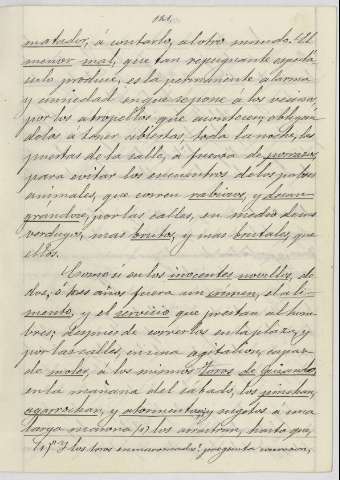 121.
matador, á contarlo, al otro mundo. El
menor mal, que tan repugnante espectá-
culo produce, es la permanente alarma
y ansiedad en que se pone á los vecinos
por los atropellos que acontecen; obligan-
dolos á tener abiertas, toda la noche, las
puertas de la calle, á fuerza de porrazos,
para evitar los encuentros de los pobres
animales, que corren rabiosos, y desan-
grandose, por las calles, en medio de sus
verdugos, mas brutos, y mas brutales, que
ellos.
Como si en los inocentes novillos, de
dos, ó tres años fuera un crímen, el ali-
mento, y el servicio que prestan al hom-
bre; despues de correrlos en la plaza, y
por las calles, en una agitacion, capaz
de moler, á los mismos Toros de Guisando,
en la mañana del sábado, los pinchan,
agarrochan, y atormentan; y sugetos á una
larga maroma (1) los arrastran, hasta que,
(1) "Y los toros enmaromados?" pregunta